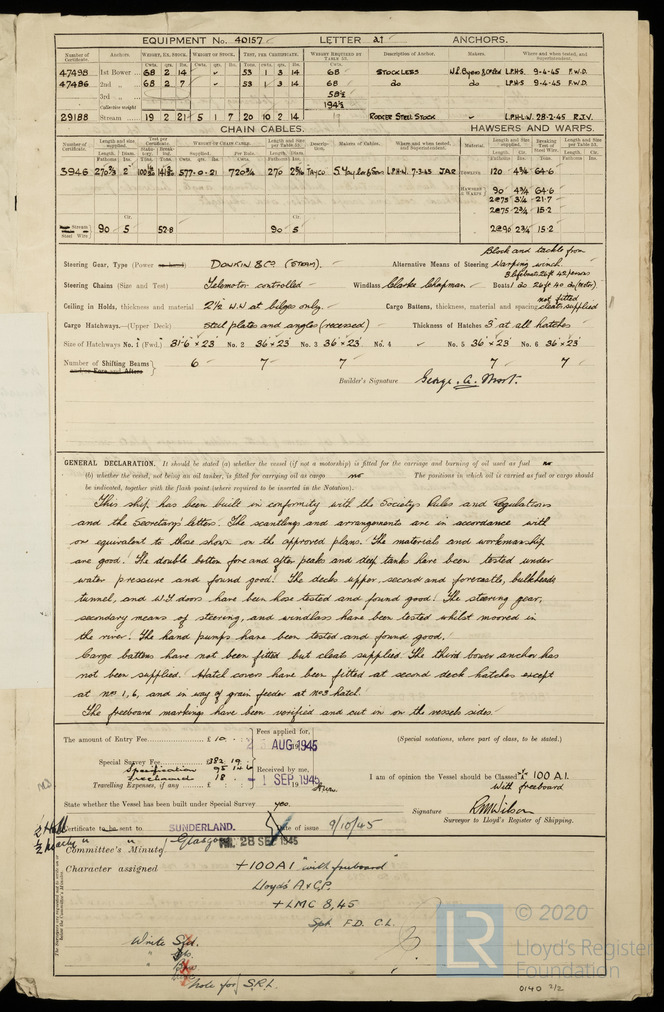 EQUIPMENT No. 40157 LETTER a† ANCHORS.
Number of Certificate. Anchors. WEIGHT, EX. STOCK. WEIGHT OF STOCK. TEST, PER CERTIFICATE. WEIGHT REQUIRED BY TABLE 53. Description of Anchor. Makers. Where and when tested, and Superintendent.
47498 1st Bower 68 2 14 53 1 3 14 68 STOCKLESS L.P.H-S. 9-4-45 F.W.D.
47486 2nd " 68 2 7 53 1 3 14 68 do do L.P.H-S 9-4-45 F.W.D.
3rd " 58½
Collective weight 194½
29188 Stream 19 2 21 5 1 7 20 10 2 14 RODGER STEEL STOCK L.P.H-L.W. 28-2-45 R.J.V.
CHAIN CABLES. HAWSERS AND WARPS.
Number of Certificate. Length and size supplied. Test per Certificate. WEIGHT OF CHAIN CABLE. Length and size per Table 53. Description. Makers of Cables. Where and when tested, and Superintendent. Material. Length and Size supplied. Breaking Test of Steel Wire. Length and Size per Table 53.
3946 577-0-21 720¾ 270 TAYCO S. Taylor & Sons L.P.H-W. 7-3-45 JAR TOWLINE 120 4¾ 64·6
HAWSERS & WARPS 90 4¾ 64·6
2@75 3¼ 21·7
2@75 2¾ 15·2
Stream Steel Wire 90 5 52·8 90 5 2@90 2¾ 15·2
Block and tackle from
Steering Gear, Type (Power or hand) DONKIN & Co. (STEAM). Alternative Means of Steering Warping winch
Steering Chains (Size and Test) Telemotor controlled Windlass Clarke Chapman. Boats
Ceiling in Holds, thickness and material 2½ W.W at bilges only. Cargo Battens, thickness, material and spacing not fitted cleats supplied
Cargo Hatchways.—(Upper Deck) Steel plates and angles (recessed) Thickness of Hatches 3" at all hatches
Size of Hatchways No. 1 (Fwd.) 31'6" x 23' No. 2 36' x 23' No. 3 36' x 23' No. 4 No. 5 36' x 23' No. 6 36' x 23'
Number of Shifting Beams 6 7 7 7 7
and/or Fore and Afters
Builder's Signature George. A. Mort.
GENERAL DECLARATION. It should be stated (a) whether the vessel (if not a motorship) is fitted for the carriage and burning of oil used as fuel no
(b) whether the vessel, not being an oil tanker, is fitted for carrying oil as cargo no The positions in which oil is carried as fuel or cargo should
be indicated, together with the flash point (where required to be inserted in the Notation).
This ship has been built in conformity with the Society's Rules and Regulations
and the Secretary's letters. The scantlings and arrangements are in accordance with
or equivalent to those shown on the approved plans. The materials and workmanship
are good. The double bottom fore and after peaks and deep tanks have been tested under
water pressure and found good. The decks upper, second and forecastle, bulkheads
tunnel, and W.T. doors have been hose tested and found good. The steering gear,
secondary means of steering, and windlass have been tested whilst moored in
the river. The hand pumps have been tested and found good.
Cargo battens have not been fitted but cleats supplied. The third bower anchor has
not been supplied. Hatch covers have been fitted at second deck hatches except
at nos 1, 6, and in way of grain feeder at no 3 hatch.
The freeboard markings have been verified and cut in on the vessels sides.
The amount of Entry Fee... £ 10 Fees applied for,
AUG 1945 (Special notations, where part of class, to be stated.)
Special Survey Fee... 1382 19
Specification 95 14 6 Received by me,
18 -1 SEP 1945 I am of opinion the Vessel should be Classed + 100 A1.
Travelling Expenses, if any ... £ With freeboard
State whether the Vessel has been built under Special Survey yes. Signature R.M. Wilson
Surveyor to Lloyd's Register of Shipping.
Certificate to be sent to SUNDERLAND. Date of issue 9/10/45
Committee's Minute Glasgow FRI. 28 SEP 1945
Character assigned +100A1 "with freeboard"
Lloyd's A & C.P.
+ LMC 8,45
Spt. F.D. C.L.
Write Sld.
Note for S.R.L.
LR
© 2020
Lloyd's Register
Foundation
0140 2/2